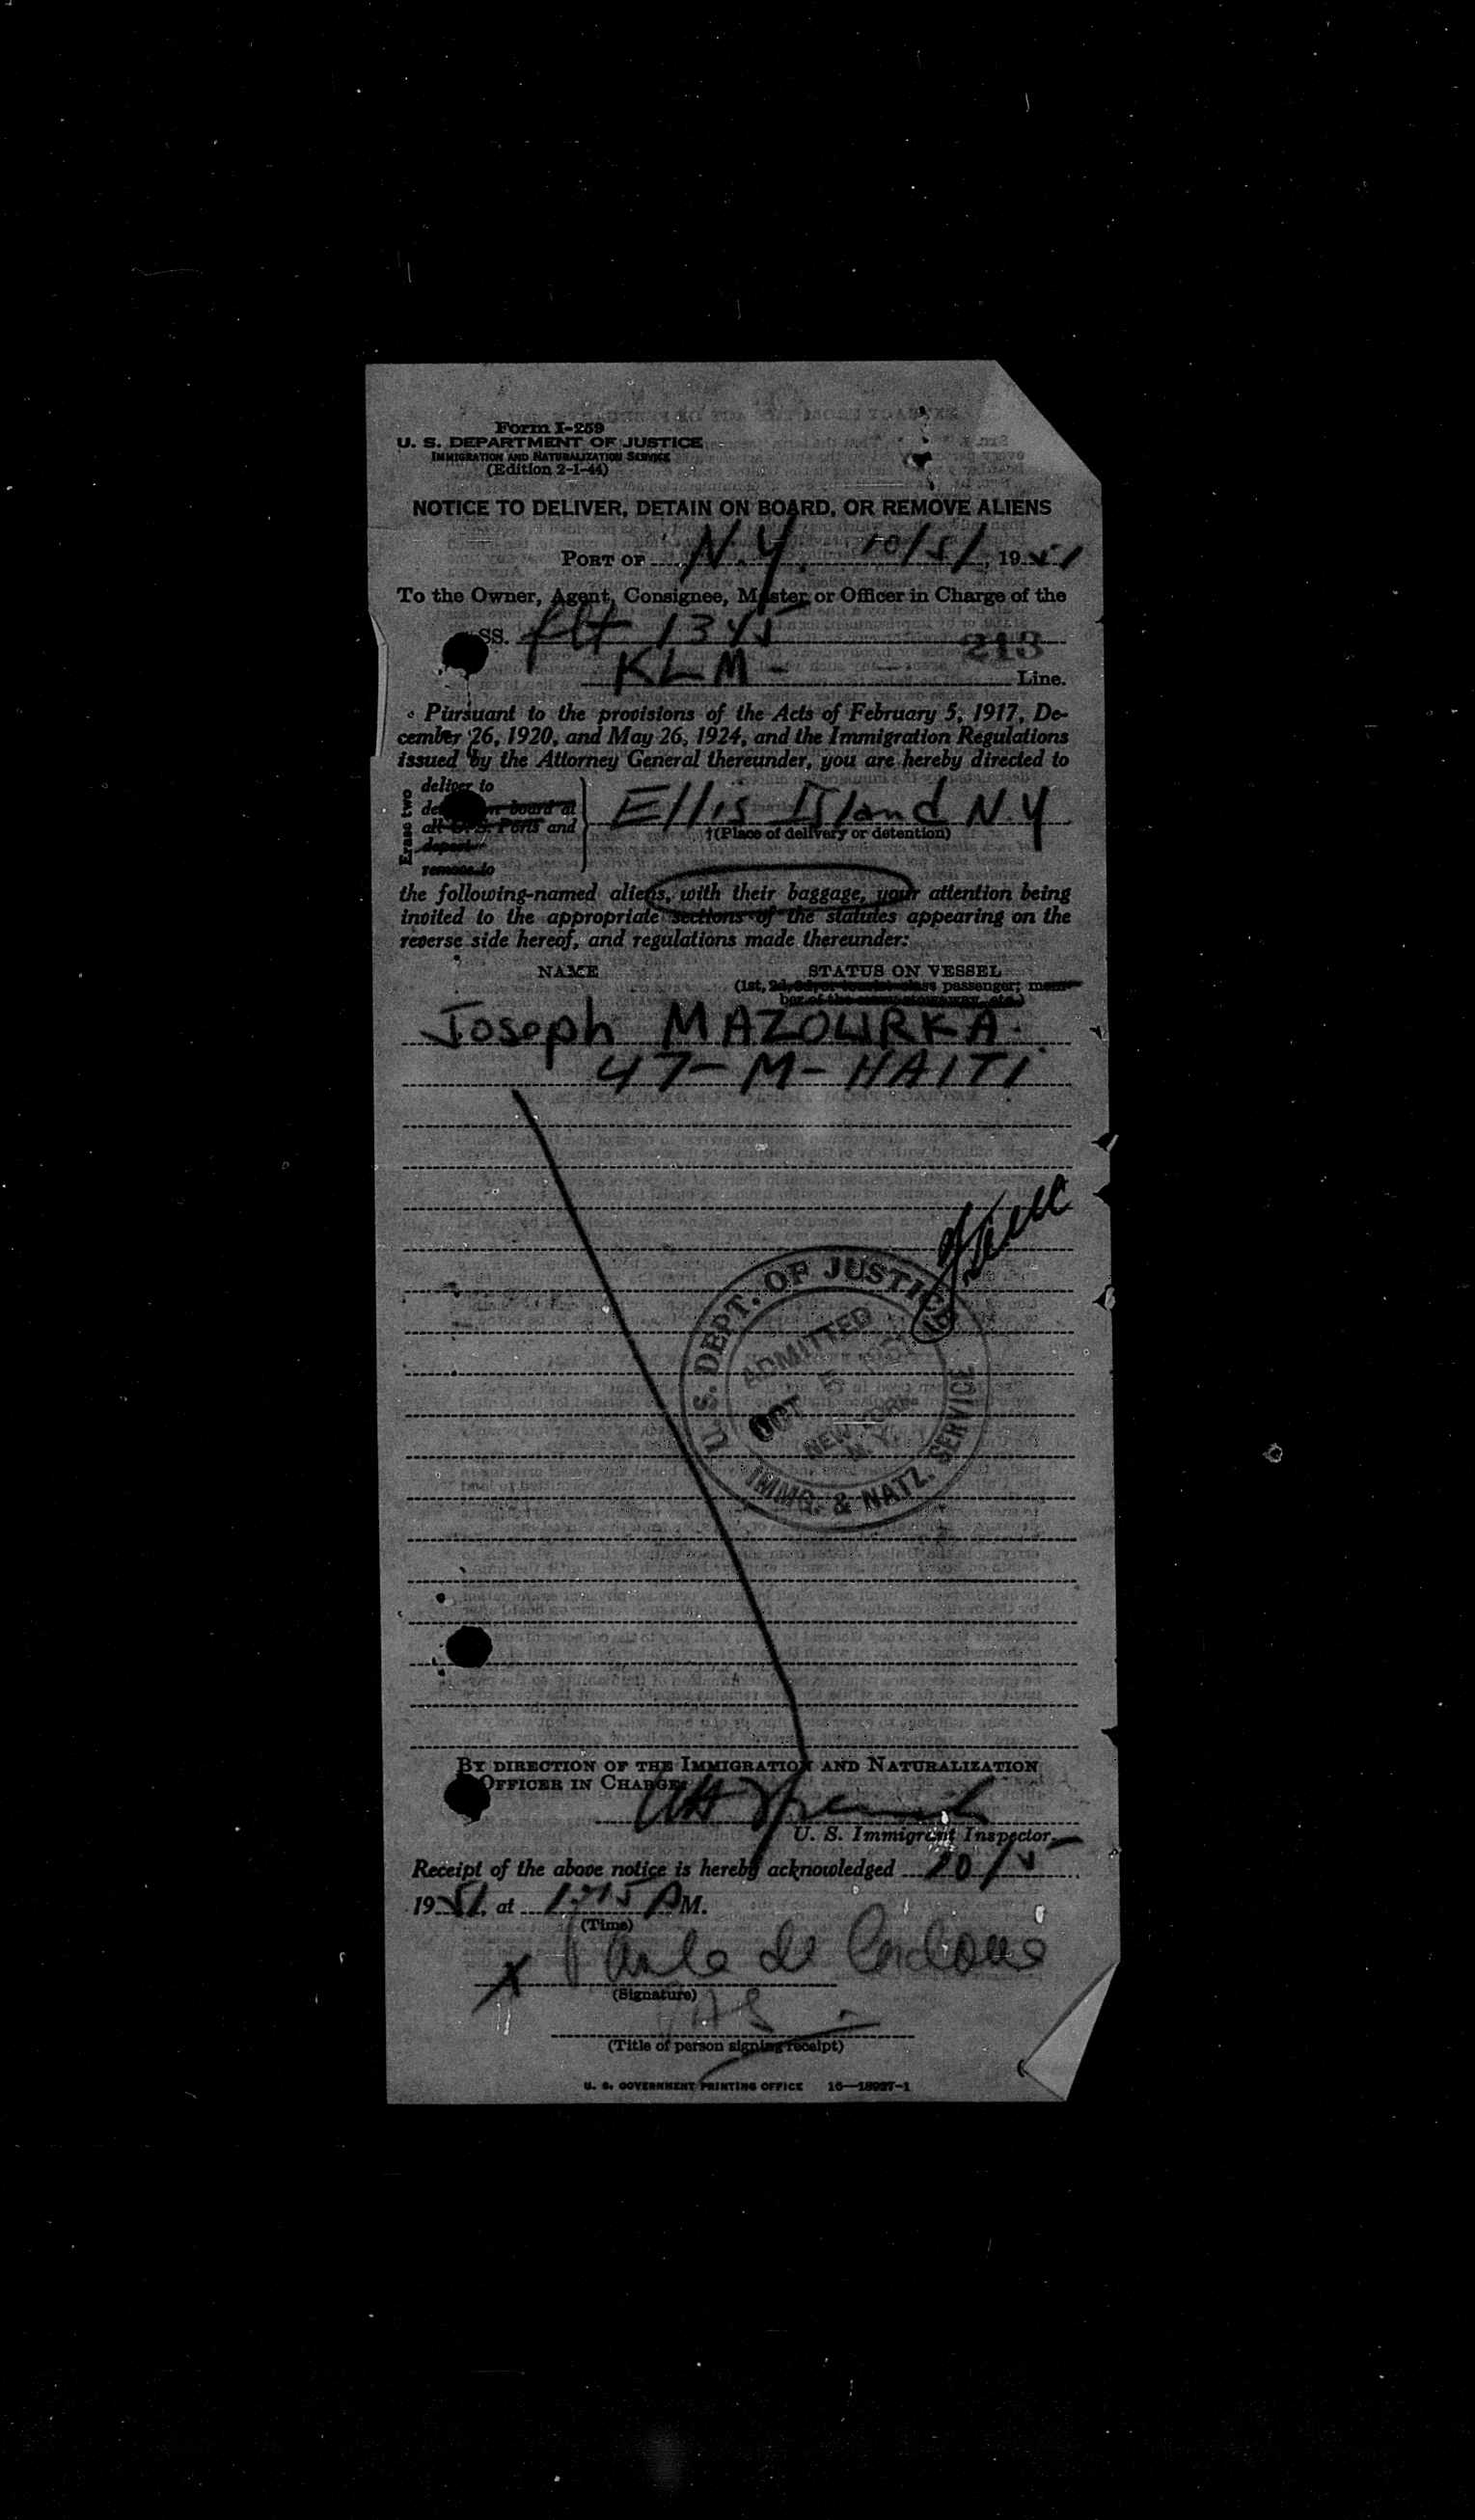 Form I-259
U. S. DEPARTMENT OF JUSTICE
IMMIGRATION AND NATURALIZATION SERVICE
(Edition 2-1-44)
NOTICE TO DELIVER, DETAIN ON BOARD, OR REMOVE ALIENS
PORT OF N.Y. 10/5/, 1951
To the Owner, Agent, Consignee, Master or Officer in Charge of the
SS. flt
213
KLM - Line.
Pursuant to the provisions of the Acts of February 5, 1917, De-
cember 26, 1920, and May 26, 1924, and the Immigration Regulations
issued by the Attorney General thereunder, you are hereby directed to
Erase two
deliver to
board at
all U. S. Ports and
depart
remove to
Ellis Island N.Y
†(Place of delivery or detention)
the following-named aliens, with their baggage, your attention being
invited to the appropriate sections of the statutes appearing on the
reverse side hereof, and regulations made thereunder:
NAME STATUS ON VESSEL
(1st, 2d, 3d, or tourist class passenger; mem-
ber of the crew, stowaway, etc.)
Joseph MAZOURKA.
47-M-HAITI
U. S. DEPT. OF JUSTICE
ADMITTED
OCT 5 1951
NEW YORK
N. Y.
IMMG. & NATZ. SERVICE
BY DIRECTION OF THE IMMIGRATION AND NATURALIZATION
OFFICER IN CHARGE:
U. S. Immigrant Inspector.
Receipt of the above notice is hereby acknowledged 10/5
1951, at AM.
(Time)
X de
(Signature)
(Title of person signing receipt)
U. S. GOVERNMENT PRINTING OFFICE 16—18027-1